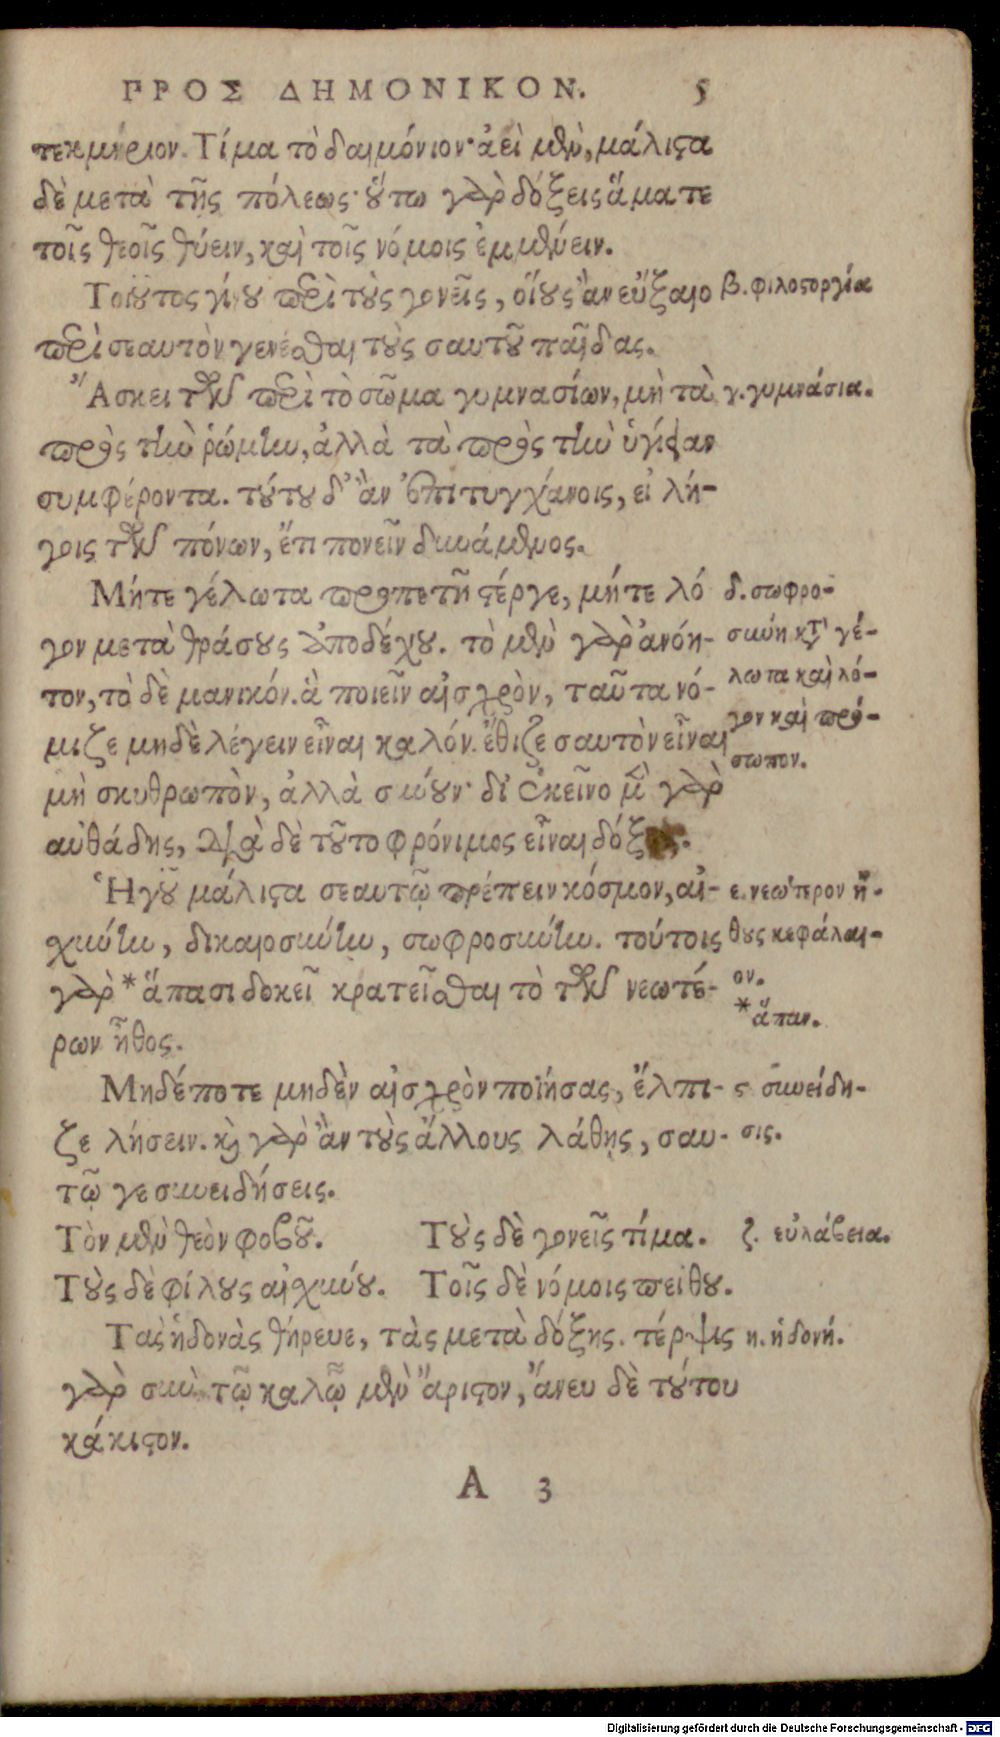 ΠΡΟΣ ΔΗΜΟΝΙΚΟΝ. 5
τεκμήριον. Τίμα τὸ δαιμόνιον· ἀεὶ μὲν, μάλιστα
δὲ μετὰ τῆς πόλεως· οὕτω γὰρ δόξεις ἅμα τε
τοῖς θεοῖς θύειν, καὶ τοῖς νόμοις ἐμμένειν.
Τοιοῦτος γίνου περὶ τοὺς γονεῖς, οἵους ἂν εὔξαιο
β. φιλοστοργία
περὶ σεαυτὸν γενέσθαι τοὺς σαυτοῦ παῖδας.
Ἄσκει τῶν περὶ τὸ σῶμα γυμνασίων, μὴ τὰ
γ. γυμνάσια.
πρὸς τὴν ῥώμην, ἀλλὰ τὰ πρὸς τὴν ὑγίειαν
συμφέροντα. τούτου δ' ἂν ἐπιτυγχάνοις, εἰ λή-
γοις τῶν πόνων, ἔτι πονεῖν δυνάμενος.
Μήτε γέλωτα προπετῆ στέργε, μήτε λό
δ. σωφρο-
γον μετὰ θράσους ἀποδέχου. τὸ μὲν γὰρ ἀνόη-
σύνη κτ' γέ-
τον, τὸ δὲ μανικόν. ἃ ποιεῖν αἰσχρὸν, ταῦτα νό-
λωτα καὶ λό-
γον καὶ πρό-
μιζε μηδὲ λέγειν εἶναι καλόν. ἔθιζε σαυτὸν εἶναι
σωπον.
μὴ σκυθρωπὸν, ἀλλὰ σύνουν· δι' ἐκεῖνο μὲν γὰρ
αὐθάδης, διὰ δὲ τοῦτο φρόνιμος εἶναι δόξεις.
Ἡγοῦ μάλιστα σεαυτῷ πρέπειν κόσμον, αἰ-
ε. νεωτέρον ἤ-
σχύνην, δικαιοσύνην, σωφροσύνην. τούτοις
θους κεφάλαι-
γὰρ * ἅπασι δοκεῖ κρατεῖσθαι τὸ τῶν νεωτέ-
ον.
* ἅπαν.
ρων ἦθος.
Μηδέποτε μηδὲν αἰσχρὸν ποιήσας, ἔλπι-
ϛ συνείδη-
ζε λήσειν. καὶ γὰρ ἂν τοὺς ἄλλους λάθῃς, σαυ-
σις.
τῷ γε συνειδήσεις.
Τὸν μὲν θεὸν φοβοῦ. Τοὺς δὲ γονεῖς τίμα.
ζ. εὐλάβεια.
Τοὺς δὲ φίλους αἰσχύνου. Τοῖς δὲ νόμοις πείθου.
Τὰς ἡδονὰς θήρευε, τὰς μετὰ δόξης. τέρψις
η. ἡδονή.
γὰρ σὺν τῷ καλῷ μὲν ἄριστον, ἄνευ δὲ τούτου
κάκιστον.
A 3
Digitalisierung gefördert durch die Deutsche Forschungsgemeinschaft - DFG